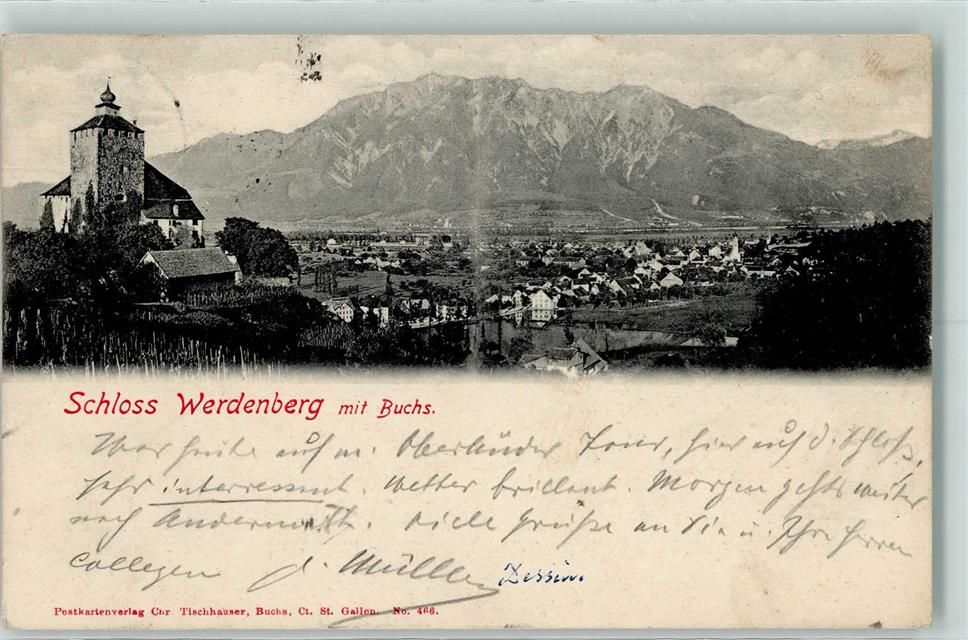 Schloss Werdenberg mit Buchs.
War heute auf m. Oberländer Tour, hier auf d. Schloß,
sehr interressent. Wetter brillant. Morgen gehts weiter
nach Andermatt. Viele Grüße an Sie u. Ihre Herren
Collegen J. Müller Dessin.
Postkartenverlag Chr Tischhauser, Buchs, Ct. St. Gallen. No. 466.